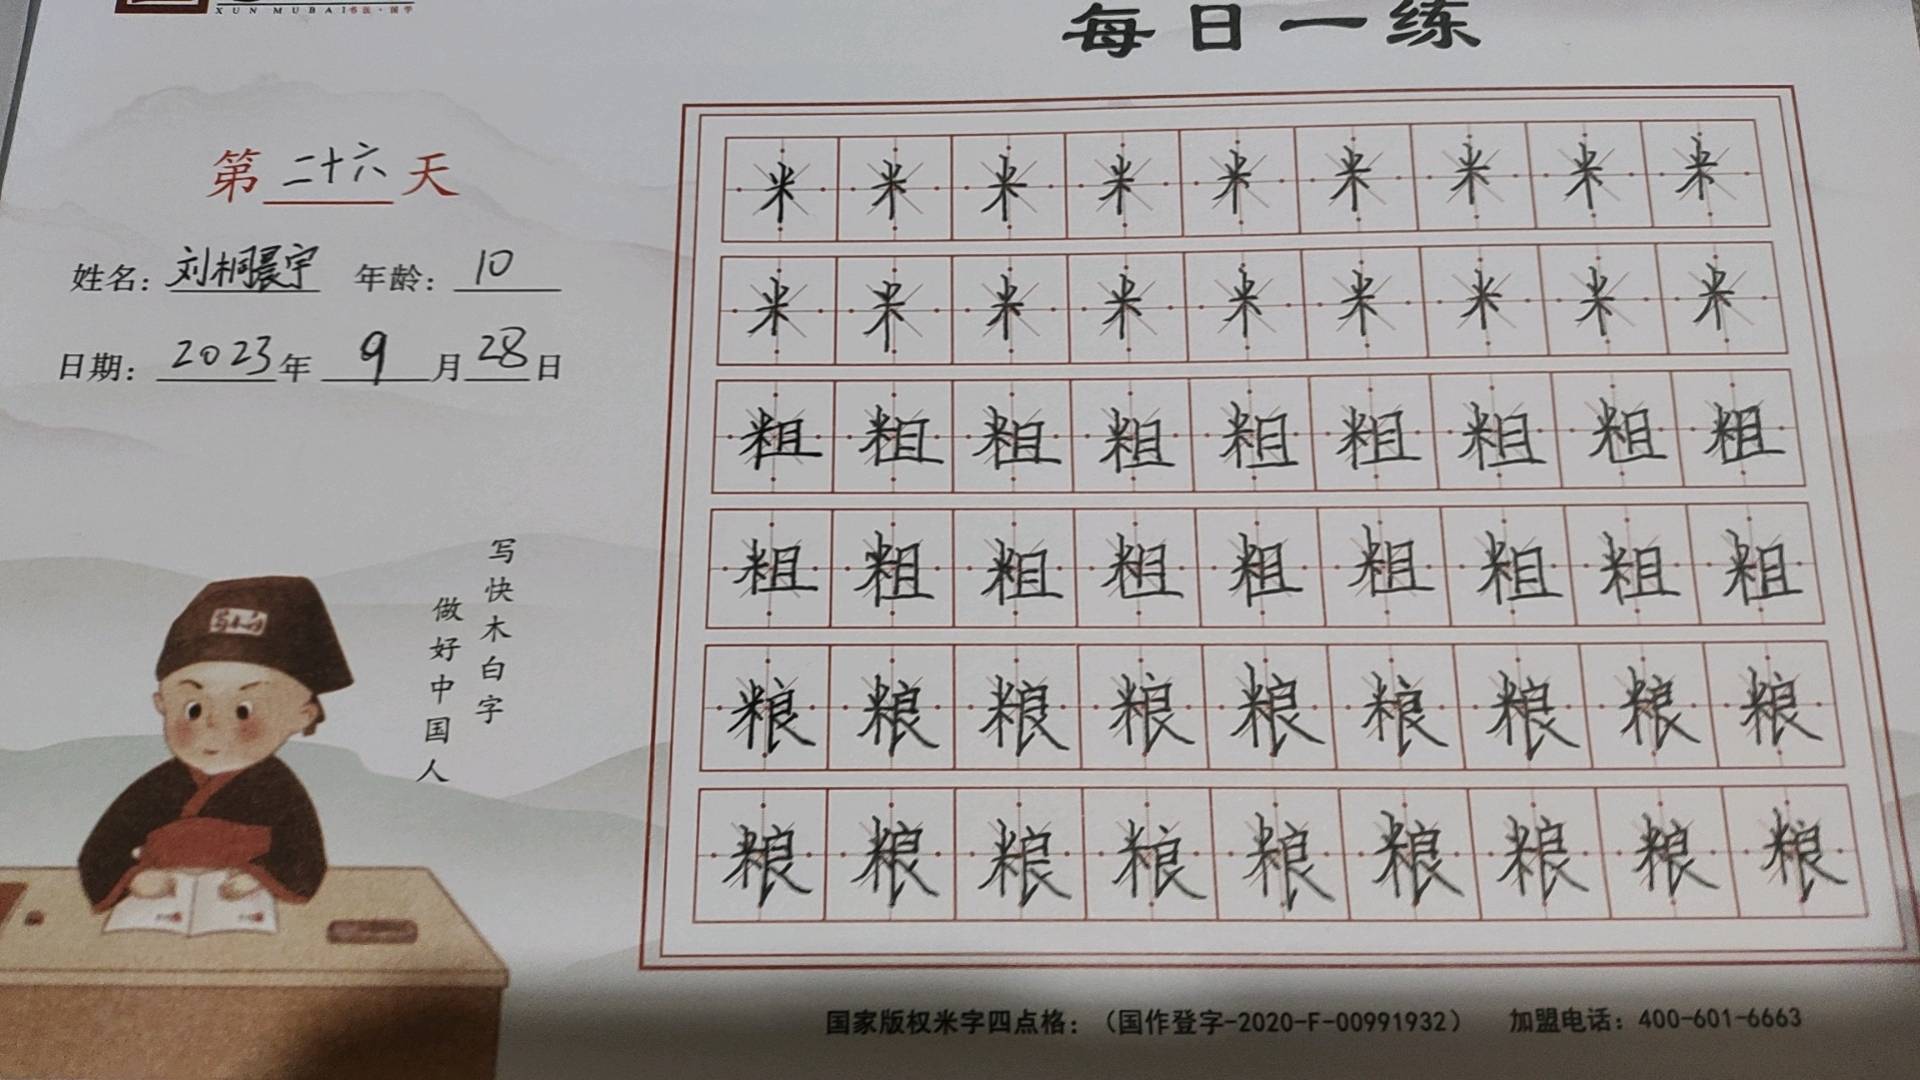 XUN MUBAI书法·国学
每日一练
第二十六天
姓名：刘桐晨宇 年龄：10
日期：2023年9月28日
米米米米米米米米米
米米米米米米米米米
粗粗粗粗粗粗粗粗粗
粗粗粗粗粗粗粗粗粗
粮粮粮粮粮粮粮粮粮
粮粮粮粮粮粮粮粮粮
写快木白字
做好中国人
国家版权米字四点格：（国作登字-2020-F-00991932） 加盟电话：400-601-6663